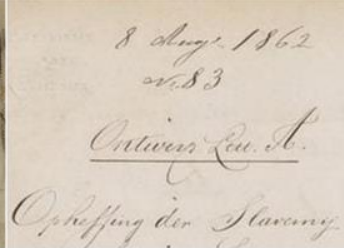 8 Aug. 1862
N. 83
Ontwerp Lett. A.
Opheffing der Slaverny